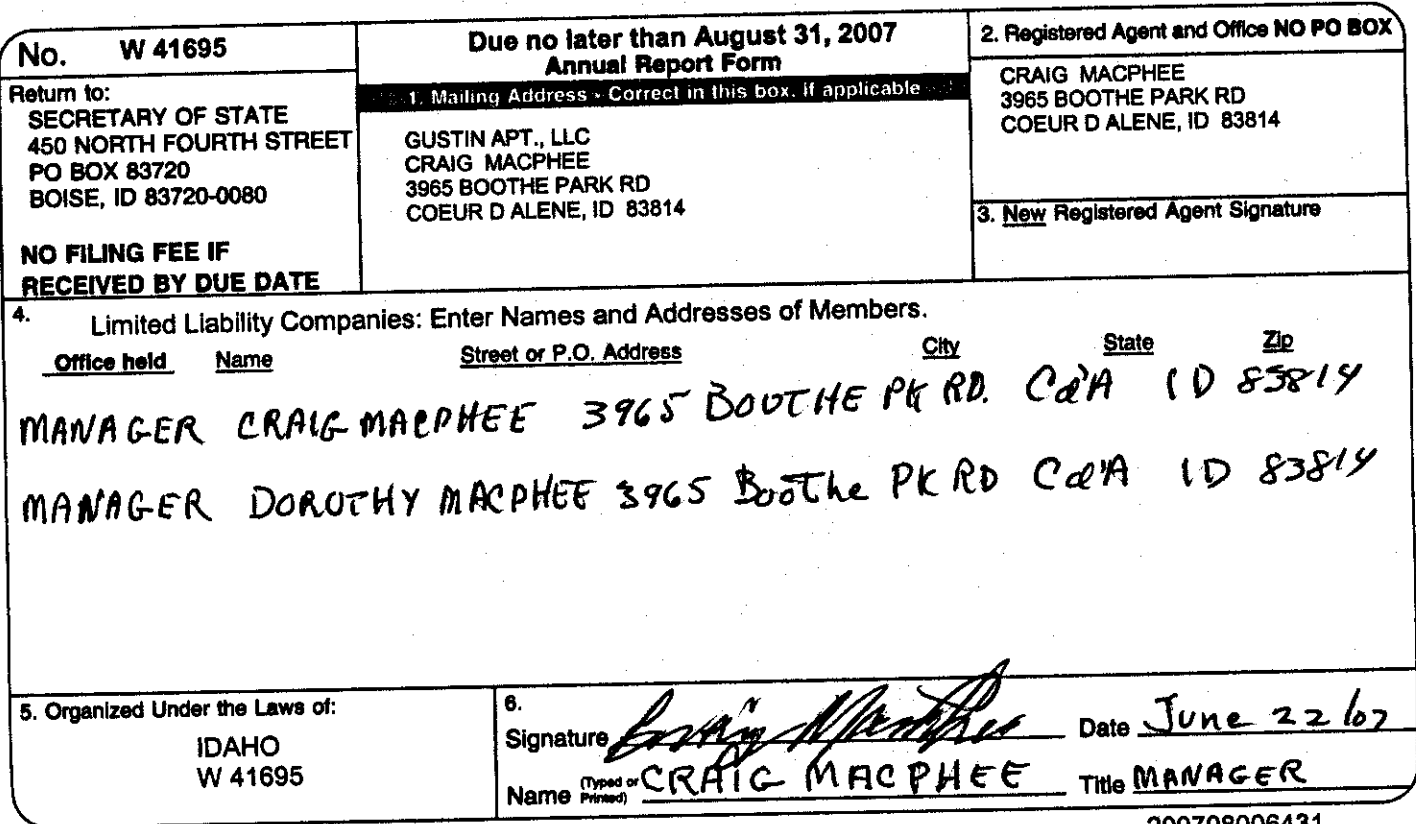 No. W 41695
Return to:
SECRETARY OF STATE
450 NORTH FOURTH STREET
PO BOX 83720
BOISE, ID 83720-0080
NO FILING FEE IF
RECEIVED BY DUE DATE
Due no later than August 31, 2007
Annual Report Form
1. Mailing Address - Correct in this box, if applicable
GUSTIN APT., LLC
CRAIG MACPHEE
3965 BOOTHE PARK RD
COEUR D ALENE, ID 83814
2. Registered Agent and Office NO PO BOX
CRAIG MACPHEE
3965 BOOTHE PARK RD
COEUR D ALENE, ID 83814
3. New Registered Agent Signature
4. Limited Liability Companies: Enter Names and Addresses of Members.
Office held Name Street or P.O. Address City State Zip
MANAGER CRAIG MACPHEE 3965 BOOTHE PK RD. Cd'A ID 83814
MANAGER DOROTHY MACPHEE 3965 BooThe PK RD Cd'A ID 83814
5. Organized Under the Laws of:
IDAHO
W 41695
6.
Signature Craig MacPhee Date June 22/07
Name (Typed or Printed) CRAIG MACPHEE Title MANAGER
200708006431